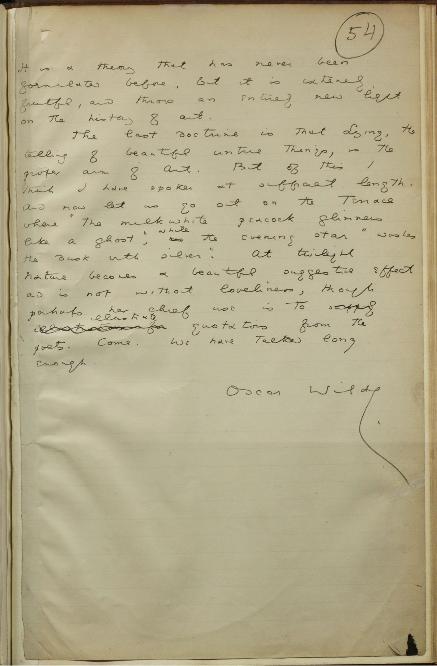 54
It is a theory that has never been
formulated before, but it is extremely
fruitful, and throws an entirely new light
on the history of art.
The last doctrine is that Lying, the
telling of beautiful untrue things, is the
proper aim of Art. But of this I
think I have spoken at sufficient length.
And now let us go out on the Terrace
where "the milkwhite peacock glimmers
like a ghost", while the evening star "washes
the dusk with silver". At twilight
nature becomes a beautiful suggestive effect
and is not without loveliness, though
perhaps her chief use is to
illustrate quotations from the
poets. Come. We have talked long
enough.
Oscar Wilde